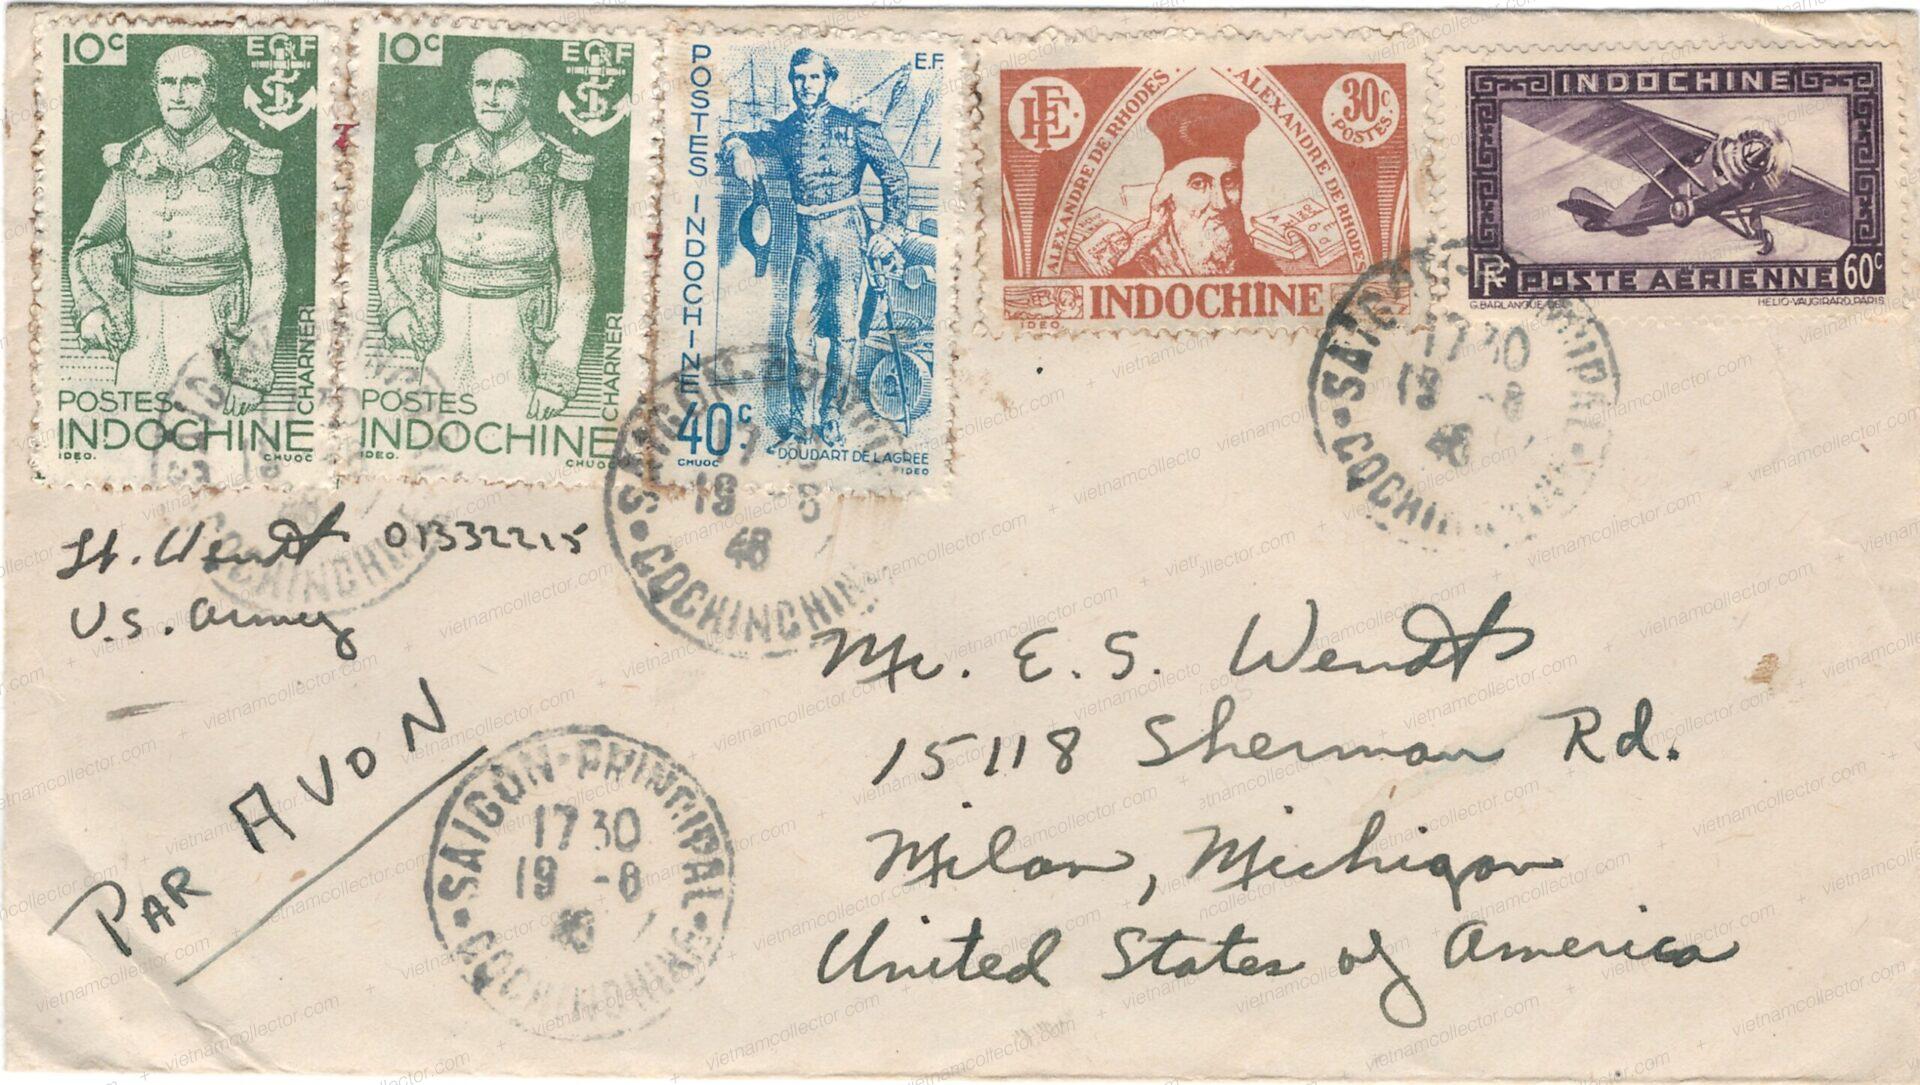 10c
EF
POSTES
INDOCHINE
CHARNER
IDEO.
CHUOC
10c
EF
POSTES
INDOCHINE
CHARNER
IDEO.
CHUOC
POSTES INDOCHINE
E.F
40c.
DOUDART DE LAGREE
CHUOC
IDEO
EF
ALEXANDRE DE RHODES
ALEXANDRE DE RHODES
30c
POSTES
INDOCHINE
IDEO.
INDOCHINE
RF
POSTE AÉRIENNE
60c
G.BARLANGUE DEL
HELIO-VAUGIRARD, PARIS
SAIGON-PRINCIPAL
17 30
19 -8
46
COCHINCHINE
SAIGON-PRINCIPAL
17
19 -8
46
COCHINCHINE
COCHINCHINE
Lt. Wendt 01332215
U.S. Army
PAR AVON
SAIGON-PRINCIPAL
17 30
19 -8
46
COCHINCHINE
Mr. E. S. Wendt
15118 Sherman Rd.
Milan, Michigan
United States of America
vietnamcollector.com